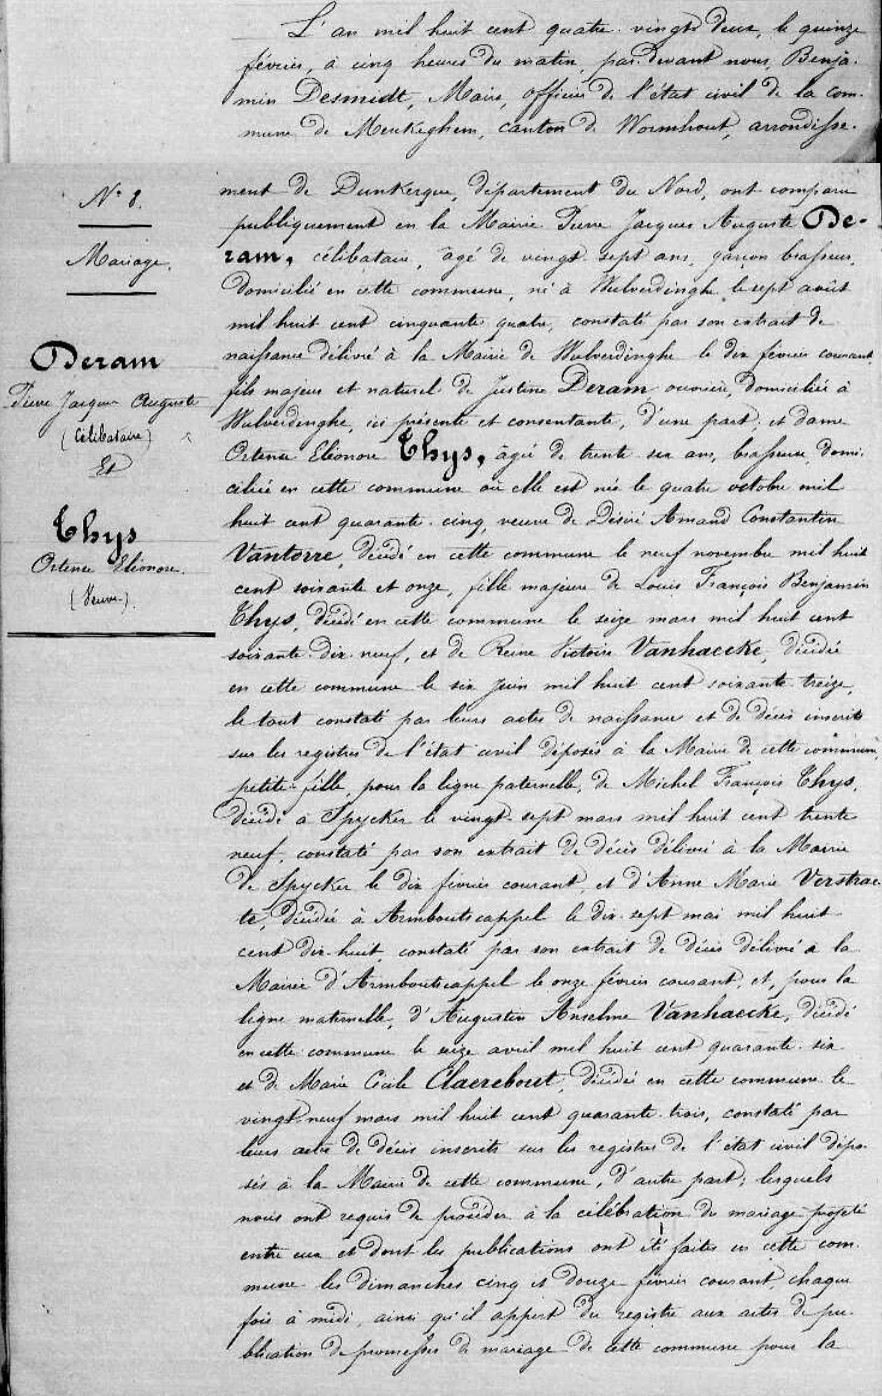 L'an mil huit cent quatre-vingt deux, le quinze
février, à cinq heures du matin, par-devant nous, Benja-
min Desmidt, Maire, officier de l'état civil de la com-
mune de Merckeghem, canton de Wormhout, arrondisse-
N° 8.
Mariage.
Deram
Pierre Jacques Auguste
(Célibataire)
Et
Thys
Ortence Eléonore.
(Veuve).
ment de Dunkerque, département du Nord, ont comparu
publiquement en la Mairie Pierre Jacques Auguste De-
ram, célibataire, âgé de vingt-sept ans, garçon brasseur,
domicilié en cette commune, né à Wulverdinghe le sept août
mil huit cent cinquante quatre, constaté par son extrait de
naissance délivré à la Mairie de Wulverdinghe le dix février courant,
fils majeur et naturel de Justine Deram ouvrière, domiciliée à
Wulverdinghe, ici présente et consentante, d'une part; et dame
Ortence Eléonore Thys, âgée de trente-six ans, brasseuse, domi-
ciliée en cette commune où elle est née le quatre octobre mil
huit cent quarante-cinq, veuve de Désiré Amand Constantin
Vantorre, décédé en cette commune le neuf novembre mil huit
cent soixante et onze, fille majeure de Louis François Benjamin
Thys, décédé en cette commune le seize mars mil huit cent
soixante-dix-neuf, et de Reine Victoire Vanhaecke, décédée
en cette commune le six Juin mil huit cent soixante-treize,
le tout constaté par leurs actes de naissance et de décès inscrits
sur les registres de l'état civil déposés à la Mairie de cette commune,
petite-fille, pour la ligne paternelle, de Michel François Thys,
décédé à Spycker le vingt-sept mars mil huit cent trente
neuf, constaté par son extrait de décès délivré à la Mairie
de Spycker le dix février courant, et d'Anne Marie Verstrae-
te, décédée à Armboutscappel le dix-sept mai mil huit
cent dix-huit, constaté par son extrait de décès délivré à la
Mairie d'Armboutscappel le onze février courant, et, pour la
ligne maternelle, d'Augustin Anselme Vanhaecke, décédé
en cette commune le seize avril mil huit cent quarante-six
et de Marie Cécile Claerebout, décédée en cette commune le
vingt-neuf mars mil huit cent quarante-trois, constaté par
leurs actes de décès inscrits sur les registres de l'état civil dépo-
sés à la Mairie de cette commune, d'autre part; lesquels
nous ont requis de procéder à la célébration du mariage projeté
entre eux et dont les publications ont été faites en cette com-
mune les dimanches cinq et douze février courant, chaque
fois à midi, ainsi qu'il appert du registre aux actes de pu-
blication de promesses de mariage de cette commune pour la